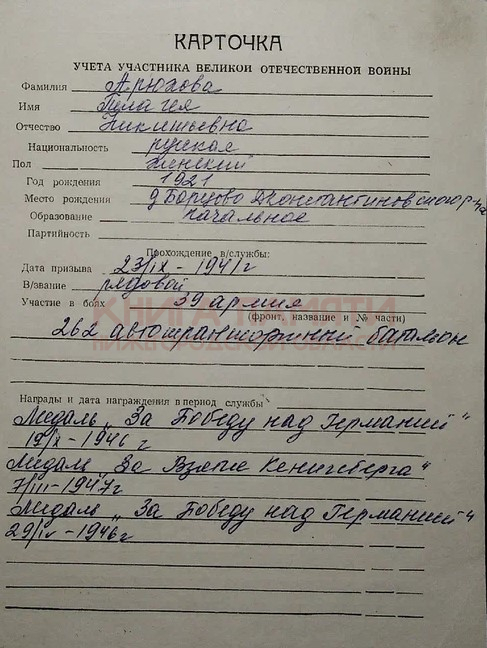 КАРТОЧКА
УЧЕТА УЧАСТНИКА ВЕЛИКОЙ ОТЕЧЕСТВЕННОЙ ВОЙНЫ
Фамилия Арюхова
Имя Пелагея
Отчество Никитьевна
Национальность руская
Пол женский
Год рождения 1921
Место рождения д Борцово Дконстантиновского р-на
Образование начальное
Партийность
Прохождение в/службы:
Дата призыва 23/IX - 1941г
В/звание рядовой
Участие в боях 39 армия
(фронт, название и № части)
КНИГА ПАМЯТИ
НИЖЕГОРОДСКОЙ ОБЛАСТИ
262 автотранспортный батальон
Награды и дата награждения в период службы
Медаль „За Победу над Германией"
19/II - 1946 г
Медаль „За Взятие Кенигсберга"
7/III - 1947г
Медаль „За Победу над Германией"
29/IV - 1946г